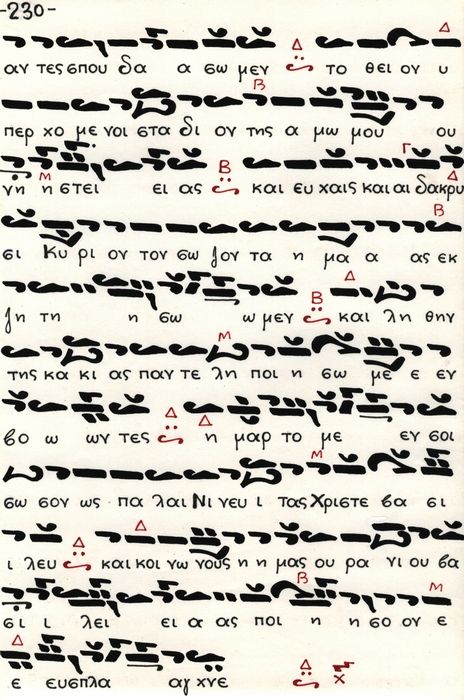 -230-
αν τες σπου δα α σω μεν το θει ον υ
περ χο με νοι στα δι ον της α μω μου ου
νη η στει ει ας και ευ χαις και αι δακρυ
σι Κυ ρι ον τον σω ζον τα η μα α ας εκ
ζη τη η σω ω μεν και λη θην
της κα κι ας παν τε λη ποι η σω με ε εν
βο ω ων τες η μαρ το με εν σοι
σω σον ως πα λαι Νι νευ ι τας Χριστε βα σι
ι λευ και κοι νω νους η η μας ου ρα νι ου βα
σι ι λει ει α ας ποι η η σο ον ε
ε ευσπλα αγ χνε